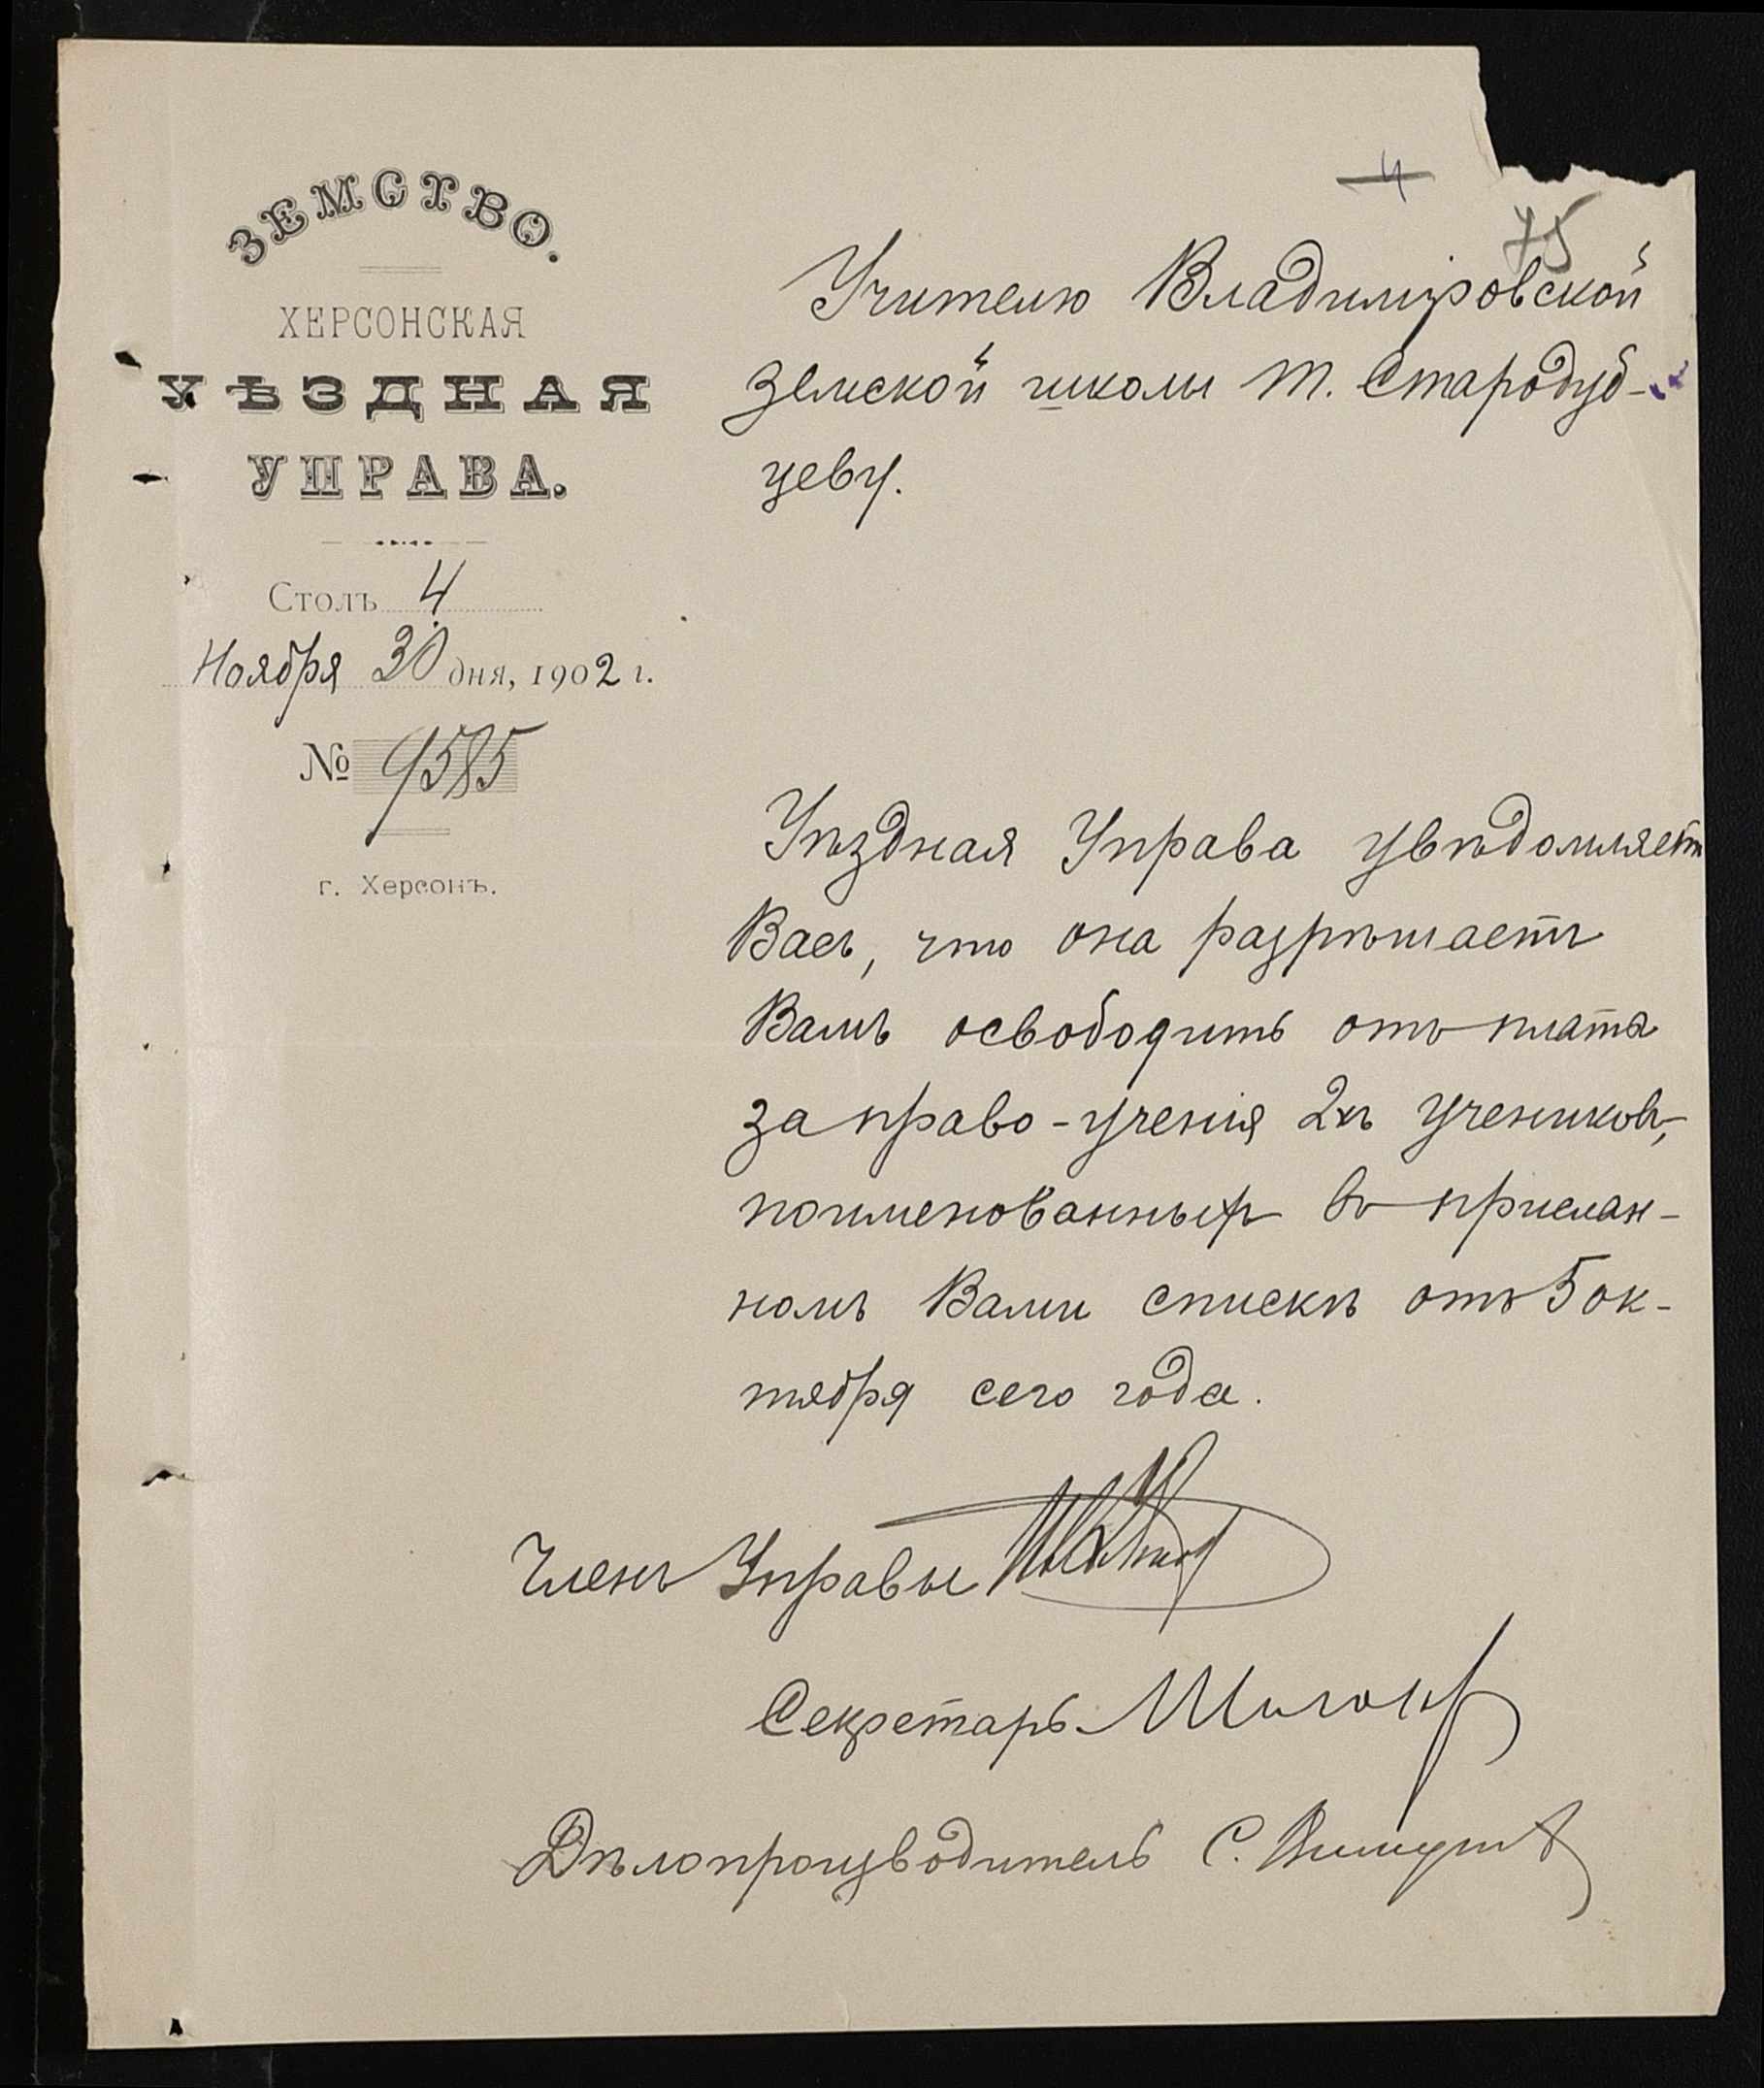 ЗЕМСТВО.
ХЕРСОНСКАЯ
УѢЗДНАЯ
УПРАВА.
Столъ 4
Ноября 30 дня, 1902 г.
№ 9585
г. Херсонъ.
4
75
Учителю Владиміровской
земской школы т. Стародуб-
цеву.
Уѣздная Управа увѣдомляетъ
Васъ, что она разрѣшаетъ
Вамъ освободить отъ платы
за право-ученія 2хъ учениковъ,
поименованныхъ въ прислан-
номъ Вами спискѣ отъ 5 ок-
тября сего года.
Членъ Управы
Секретарь
Дѣлопроизводитель С.